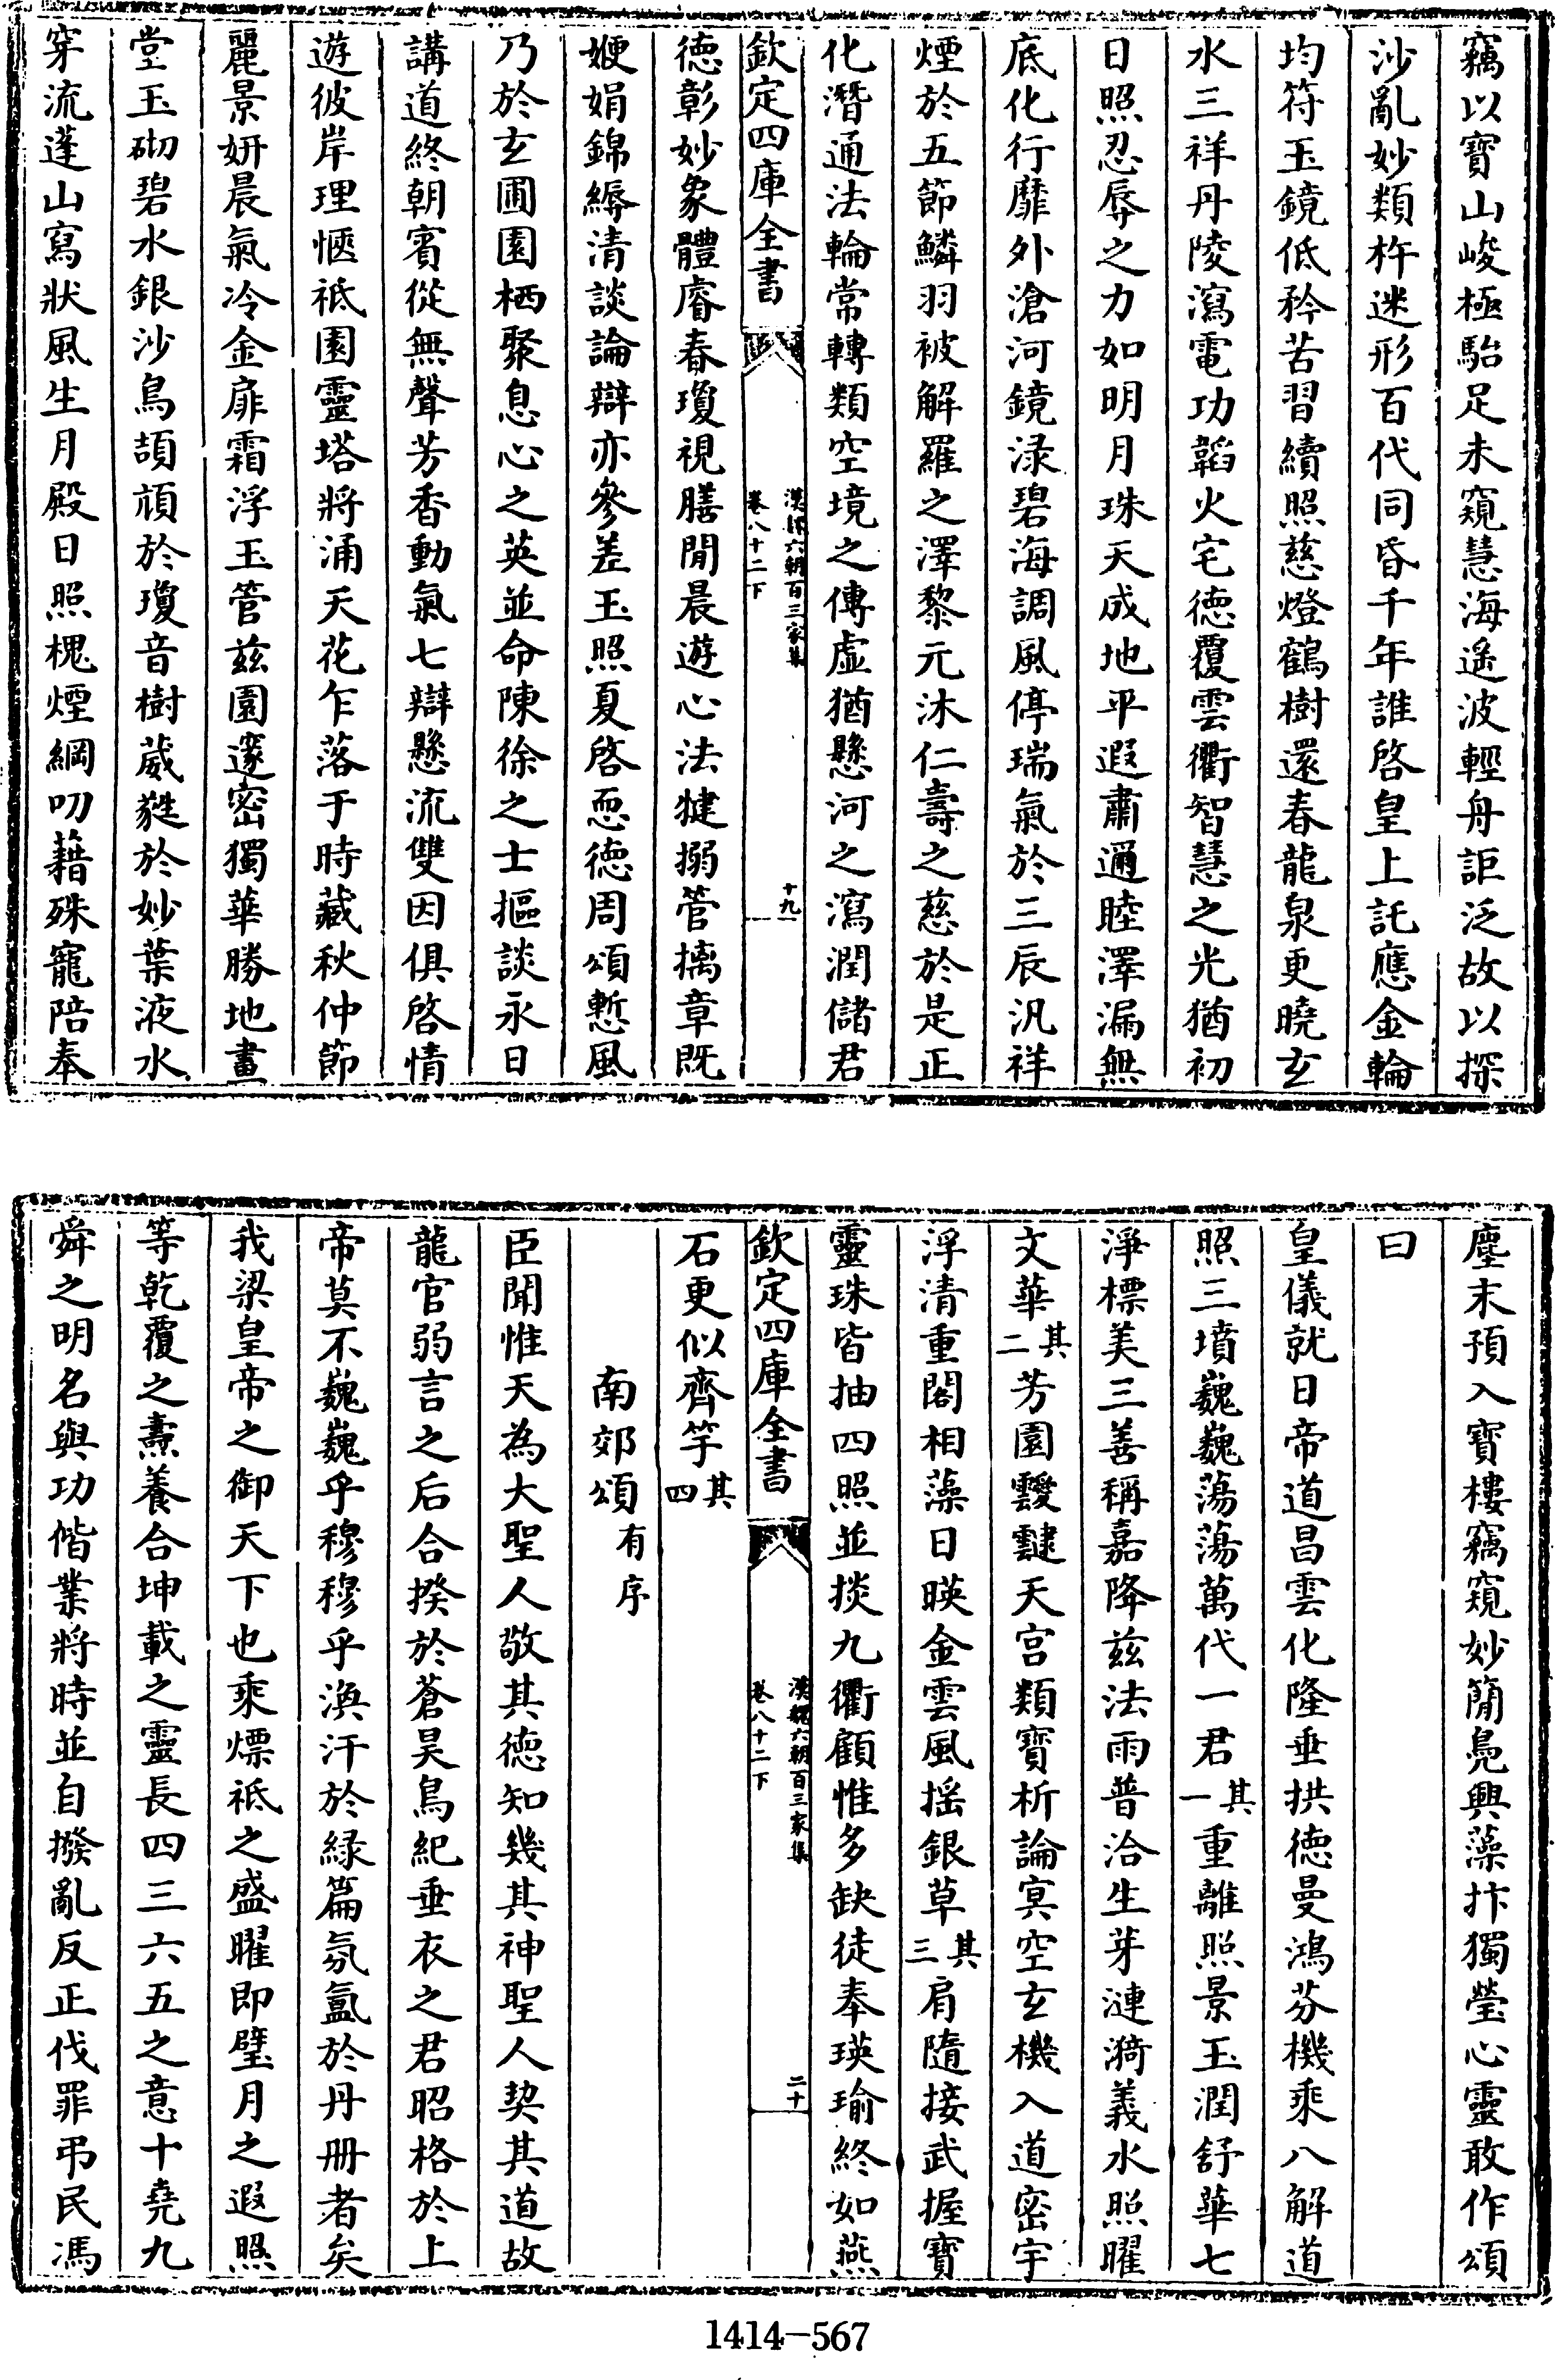 竊以寶山峻極駘足未窺慧海遥波輕舟詎泛故以探
沙亂妙類杵迷形百代同昏千年誰啓皇上託應金輪
均符玉鏡低矜苦習續照慈燈鶴樹還春龍泉更曉玄
水三祥丹陵瀉電功韜火宅徳覆雲衢智慧之光猶初
日照忍辱之力如明月珠天成地平遐肅邇睦澤漏無
底化行靡外滄河鏡渌碧海調風停瑞氣於三辰汎祥
煙於五節鱗羽被解羅之澤黎元沐仁壽之慈於是正
化潛通法輪常轉類空境之傳虛猶懸河之瀉潤儲君
欽定四庫全書
漢魏六朝百三家集
卷八十二下
十九
徳彰妙象體睿春瓊視膳閒晨遊心法犍搦管摛章既
㛹娟錦縟清談論辯亦參差玉照夏啓恧徳周頌慙風
乃於玄圃園栖聚息心之英並命陳徐之士摳談永日
講道終朝賓從無聲芳香動氣七辯懸流雙因俱啓情
遊彼岸理愜祗園靈塔將涌天花乍落于時藏秋仲節
麗景妍晨氣冷金扉霜浮玉管兹園邃密獨華勝地畫
堂玉砌碧水銀沙鳥頡頏於瓊音樹葳蕤於妙葉液水
穿流蓬山寫狀風生月殿日照槐煙綱叨藉殊寵陪奉
塵末預入寶樓竊窺妙簡鳧興藻抃獨瑩心靈敢作頌
曰
皇儀就日帝道昌雲化隆垂拱徳曼鴻芬機乘八解道
照三墳巍巍蕩蕩萬代一君其一重離照景玉潤舒華七
淨標美三善稱嘉降兹法雨普洽生芽漣漪義水照曜
文華其二芳園靉靆天宫類寳析論冥空玄機入道密宇
浮清重閣相藻日暎金雲風揺銀草其三肩隨接武握寶
靈珠皆抽四照並掞九衢顧惟多缺徒奉瑛瑜終如燕
欽定四庫全書
漢魏六朝百三家集
卷八十二下
二十
石更似齊竽其四
南郊頌有序
臣聞惟天為大聖人敬其徳知幾其神聖人契其道故
龍官弱言之后合揆於蒼昊鳥紀垂衣之君昭格於上
帝莫不巍巍乎穆穆乎渙汗於緑篇氛氳於丹冊者矣
我梁皇帝之御天下也乘熛祗之盛曜即璧月之遐照
等乾覆之燾養合坤載之靈長四三六五之意十堯九
舜之明名與功偕業將時並自撥亂反正伐罪弔民馮
1414-567